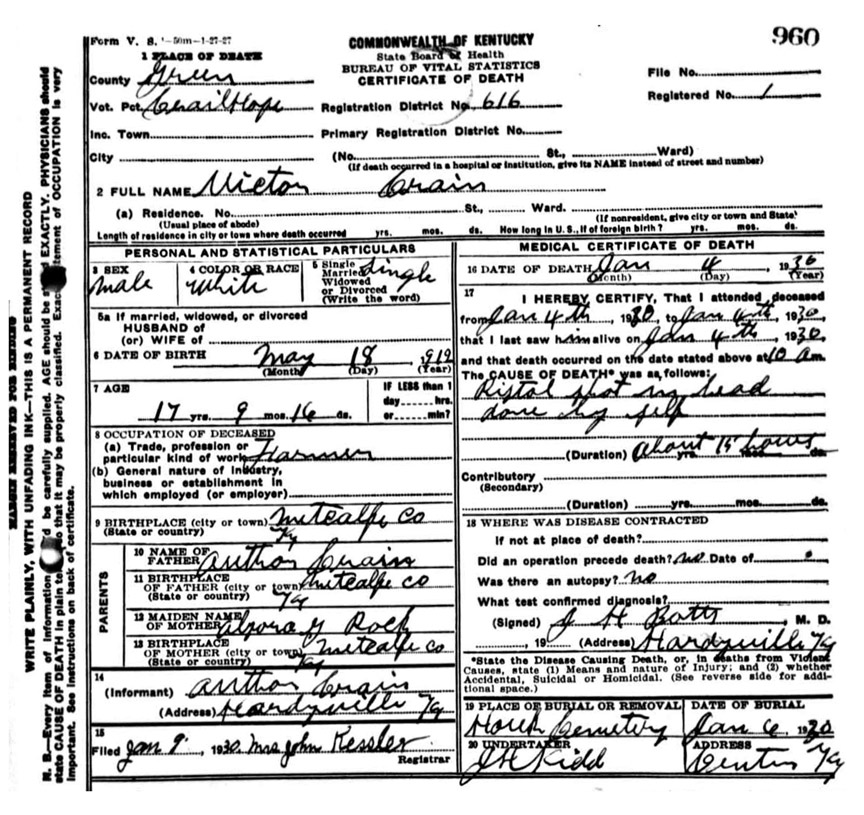 960
Form V. S. 1-50m-1-27-27
COMMONWEALTH OF KENTUCKY
State Board of Health
BUREAU OF VITAL STATISTICS
CERTIFICATE OF DEATH
1 PLACE OF DEATH
County Green
Vot. Pct.
Inc. Town
City
File No.
Registered No. 1
Registration District No. 616
Primary Registration District No.
(No. St., Ward)
(If death occurred in a hospital or institution, give its NAME instead of street and number)
2 FULL NAME Victor Crain
(a) Residence. No. St., Ward.
(Usual place of abode) (If nonresident, give city or town and State)
Length of residence in city or town where death occurred yrs. mos. ds. How long in U.S., if of foreign birth? yrs. mos. ds.
PERSONAL AND STATISTICAL PARTICULARS
3 SEX
Male
4 COLOR OR RACE
White
5 Single
Married
Widowed
or Divorced
(Write the word)
Single
5a If married, widowed, or divorced
HUSBAND of
(or) WIFE of
6 DATE OF BIRTH May 18 912
(Month) (Day) (Year)
7 AGE
17 yrs. 9 mos. 16 ds.
IF LESS than 1
day hrs.
or min?
8 OCCUPATION OF DECEASED
(a) Trade, profession or
particular kind of work Farmer
(b) General nature of industry,
business or establishment in
which employed (or employer)
9 BIRTHPLACE (city or town) Metcalfe Co
(State or country) Ky
PARENTS
10 NAME OF
FATHER Author Crain
11 BIRTHPLACE
OF FATHER (city or town) Metcalfe Co
(State or country) Ky
12 MAIDEN NAME
OF MOTHER
13 BIRTHPLACE
OF MOTHER (city or town) Metcalfe Co
(State or country) Ky
14
(Informant) Author Crain
(Address) Hardyville Ky
15
Filed Jan 9, 1930. Mrs John Kessler
Registrar
MEDICAL CERTIFICATE OF DEATH
16 DATE OF DEATH Jan 4, 1930
(Month) (Day) (Year)
17
I HEREBY CERTIFY, That I attended deceased
from Jan 4th, 1930, to Jan 4th, 1930,
that I last saw him alive on Jan 4th, 1930,
and that death occurred on the date stated above at 10 Am.
The CAUSE OF DEATH* was as follows:
Pistol shot in head
done by self
(Duration) About 15 hours yrs. mos. ds.
Contributory
(Secondary)
(Duration) yrs. mos. ds.
18 WHERE WAS DISEASE CONTRACTED
If not at place of death?
Did an operation precede death? No Date of
Was there an autopsy? No
What test confirmed diagnosis?
(Signed) J H Botts, M. D.
, 19 (Address) Hardyville Ky
*State the Disease Causing Death, or, in deaths from Violent
Causes, state (1) Means and nature of Injury; and (2) whether
Accidental, Suicidal or Homicidal. (See reverse side for addi-
tional space.)
19 PLACE OF BURIAL OR REMOVAL
Cemetery
DATE OF BURIAL
Jan 6, 1930
20 UNDERTAKER
Kidd
ADDRESS
Center Ky
MARGIN RESERVED FOR BINDING
WRITE PLAINLY, WITH UNFADING INK—THIS IS A PERMANENT RECORD
N. B.—Every item of information d be carefully supplied. AGE should be EXACTLY. PHYSICIANS should
state CAUSE OF DEATH in plain so that it may be properly classified. Exact statement of OCCUPATION is very
important. See instructions on back of certificate.